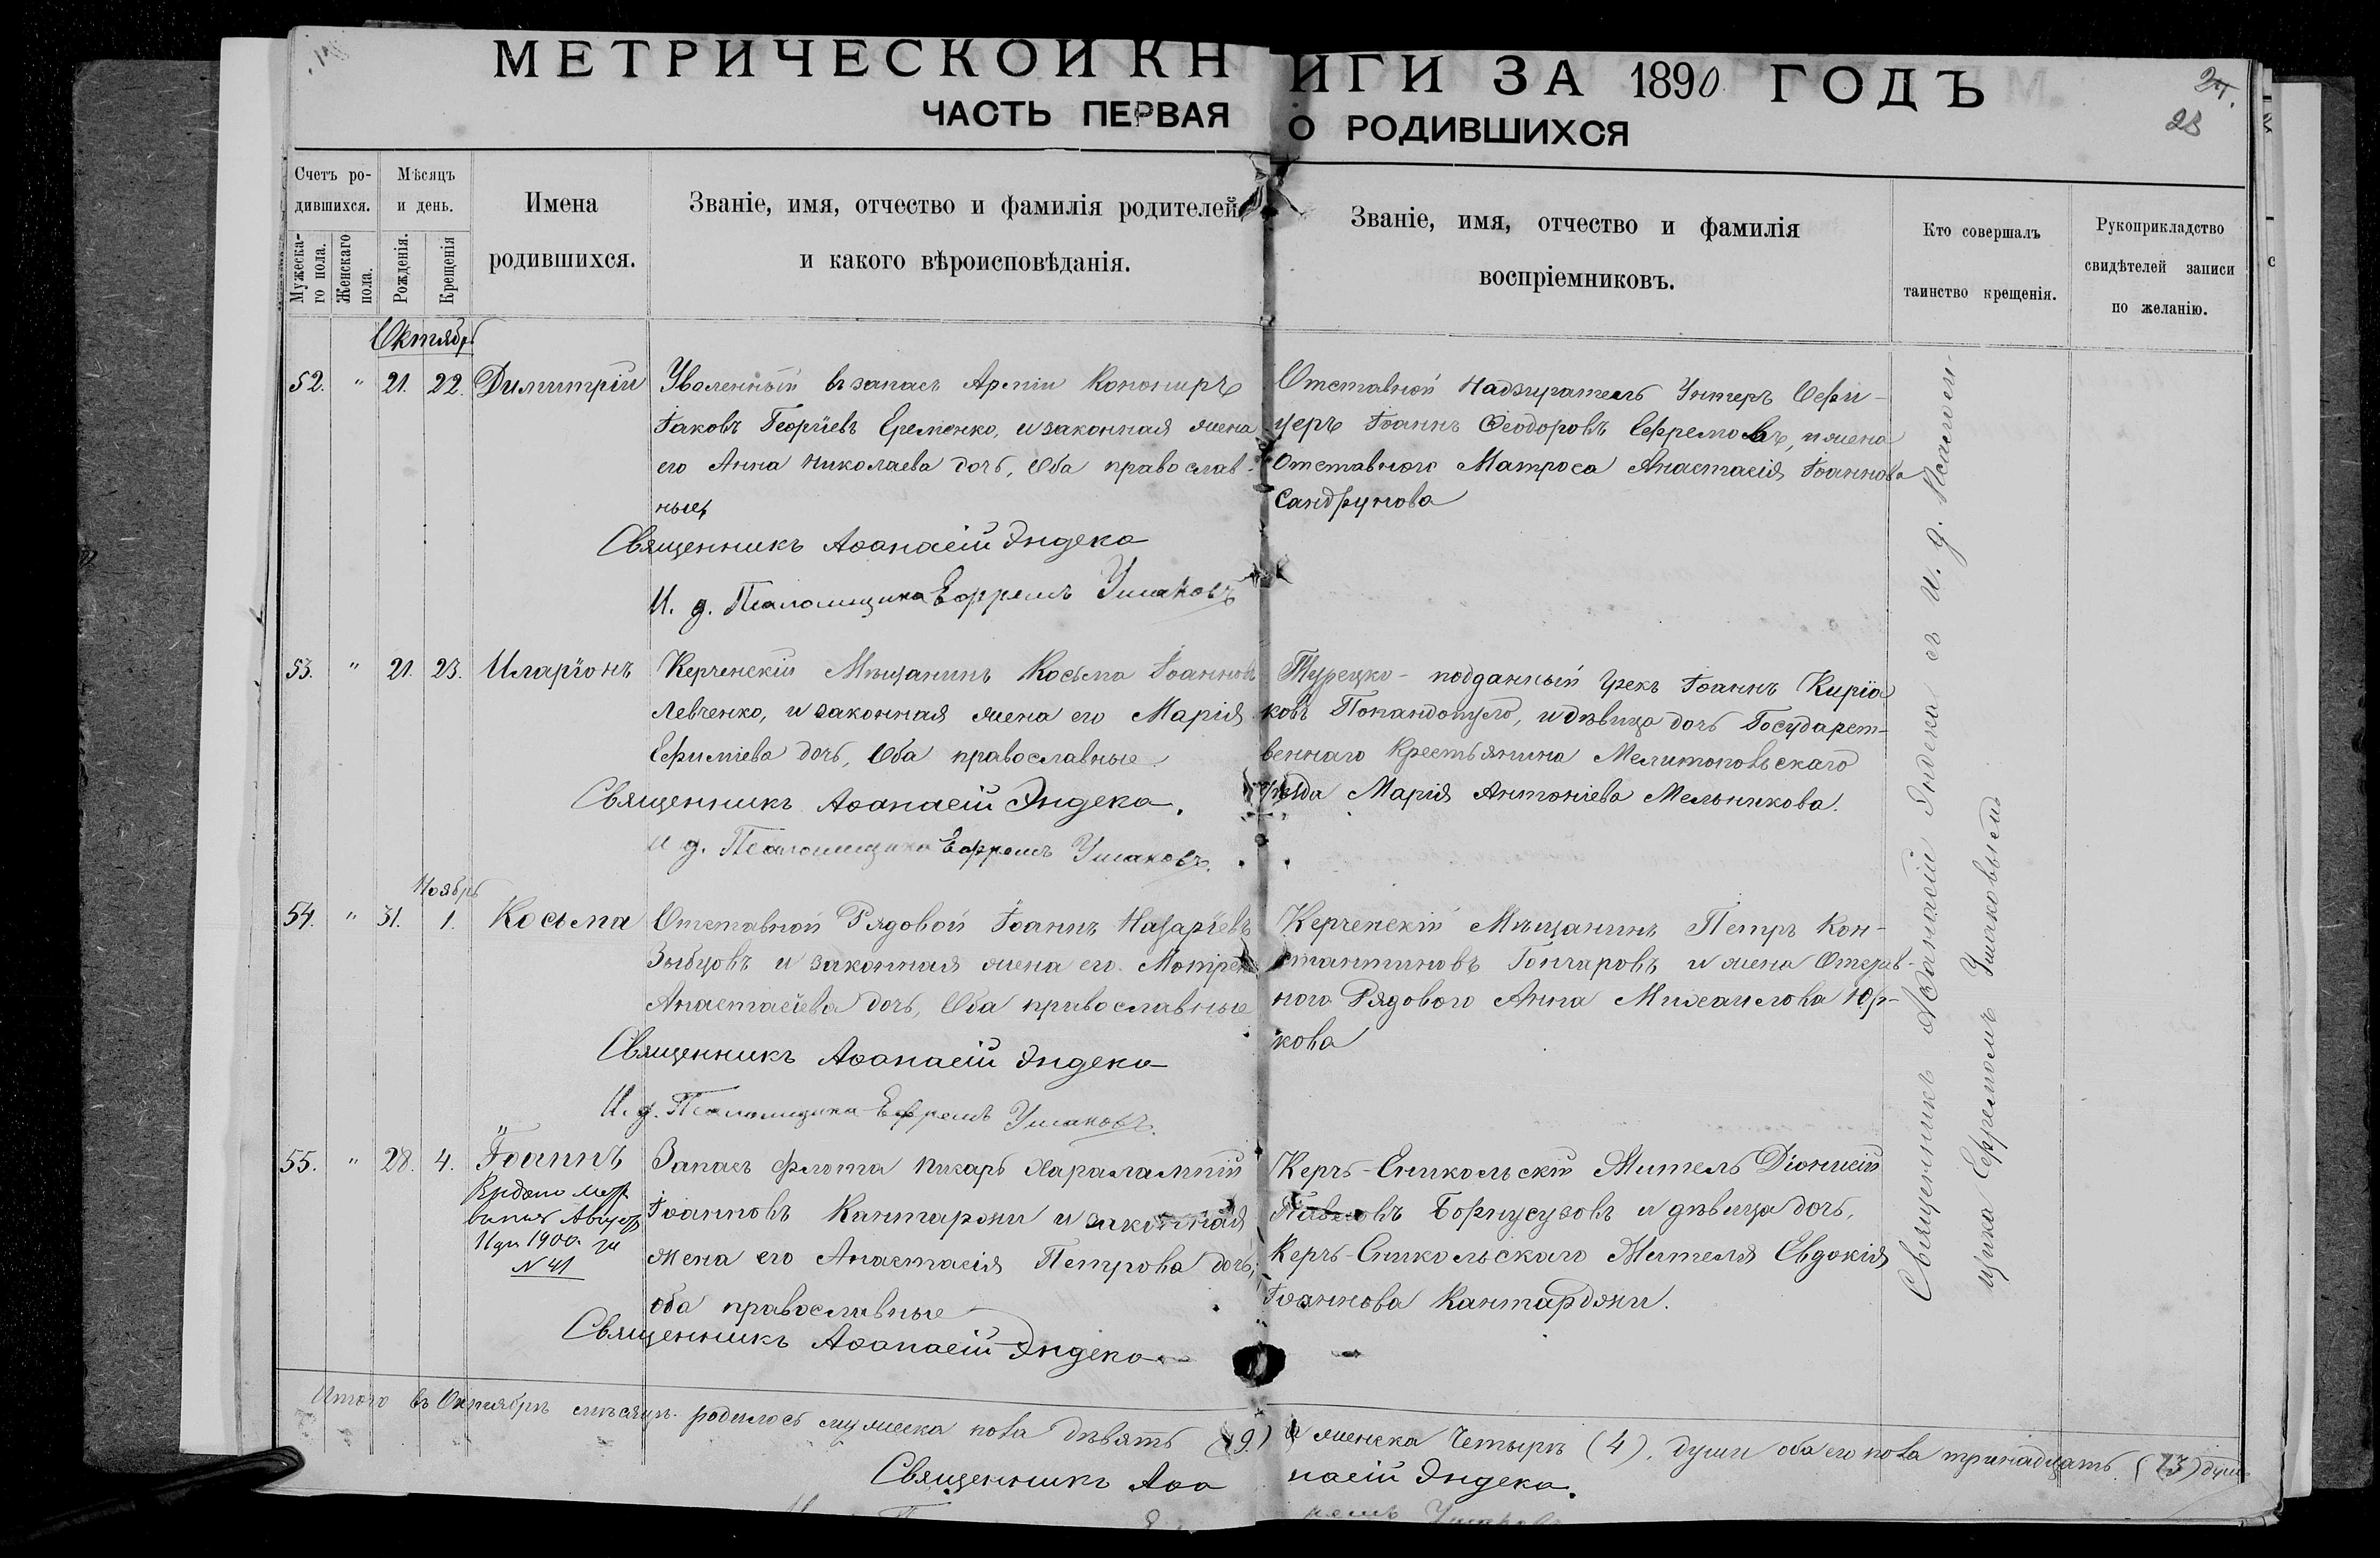 МЕТРИЧЕСКОЙ КНИГИ ЗА 1890 ГОДЪ
24.
28
ЧАСТЬ ПЕРВАЯ О РОДИВШИХСЯ
Счетъ ро-
дившихся.
Мужеска-
го пола.
Женскаго
пола.
Мѣсяцъ
и день.
Рожденія.
Крещенія
Имена
родившихся.
Званіе, имя, отчество и фамилія родителей
и какого вѣроисповѣданія.
Званіе, имя, отчество и фамилія
воспріемниковъ.
Кто совершалъ
таинство крещенія.
Рукоприкладство
свидѣтелей записи
по желанію.
Октябрь
52. " 21. 22. Димитрій
Уволенный въ запасъ Арміи Конониръ
Іаковъ Георгіевъ Еременко, и законная жена
его Анна Николаева дочь, Оба православ-
ные,
Священникъ Аѳанасій Эндека
И. д. Псаломщика Ефремъ Ушаковъ
Отставной Надзиратель Унтеръ Офи-
церъ Іоаннъ Ѳеодоровъ Ефремовъ, и жена
Отставного Матроса Анастасія Іоаннова
Сандрунова
53. " 21. 23. Иларіонъ
Керченскій Мѣщанинъ Косьма Іоанновъ
Левченко, и законная жена его Марія
Ефиміева дочь, Оба православные
Священникъ Аѳанасій Эндека.
И д. Псаломщика Ефремъ Ушаковъ.
Турецко-подданный Грекъ Іоаннъ Киріа
ковъ Попандопуло, и дѣвица дочь Государст-
веннаго Крестьянина Мелитопольскаго
уѣзда Марія Антоніева Мельникова.
Ноябрь
54. " 31. 1. Косьма
Отставной Рядовой Іоаннъ Назаріевъ
Зыбцовъ и законная жена его Мотрена
Анастасіева дочь, Оба православные
Священникъ Аѳанасій Эндека
И. д. Псаломщика Ефремъ Ушаковъ.
Керченскій Мѣщанинъ Петръ Кон-
стантиновъ Гончаровъ и жена Отстав-
ного Рядового Анна Михаилова Юр-
кова
55. " 28. 4. Іоаннъ
1900.
N 41
Запасъ флота писарь Харалампій
Іоанновъ Кантаржи и законная
жена его Анастасія Петрова дочь,
оба православные
Священникъ Аѳанасій Эндека
Керчь-Еникольскій Житель Діонисій
Павловъ Борпусузовъ и дѣвица дочь,
Керчь-Еникольскаго Жителя Евдокія
Іоаннова Кантарджи.
Священникъ Аѳанасій Эндека съ и. д. Псалом-
щика Ефремомъ Ушаковымъ
Итого въ Октябрѣ мѣсяцѣ родилось мужеска пола девять (9) и женска Четыре (4), души обоего пола тринадцать (13) душъ
Священникъ Аѳанасій Эндека.